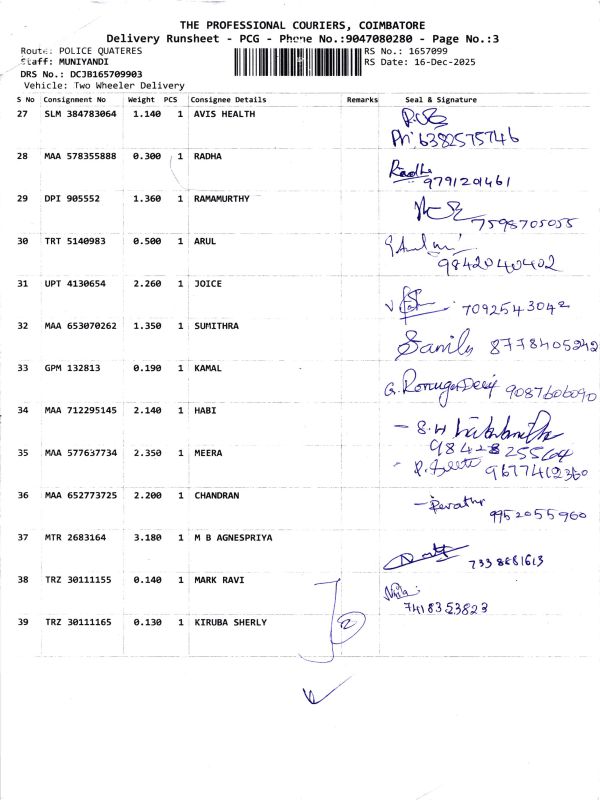 THE PROFESSIONAL COURIERS, COIMBATORE
Delivery Runsheet - PCG - Phone No.:9047080280 - Page No.:3
Route: POLICE QUATERES RS No.: 1657099
Staff: MUNIYANDI RS Date: 16-Dec-2025
DRS No.: DCJB165709903
Vehicle: Two Wheeler Delivery
S No Consignment No Weight PCS Consignee Details Remarks Seal & Signature
27 SLM 384783064 1.140 1 AVIS HEALTH
Ph: 6382575746
28 MAA 578355888 0.300 1 RADHA Radha
9791201461
29 DPI 905552 1.360 1 RAMAMURTHY
7598705055
30 TRT 5140983 0.500 1 ARUL
9842040402
31 UPT 4130654 2.260 1 JOICE
7092543042
32 MAA 653070262 1.350 1 SUMITHRA
8778405242
33 GPM 132813 0.190 1 KAMAL
9087606090
34 MAA 712295145 2.140 1 HABI
9842825564
35 MAA 577637734 2.350 1 MEERA
9677412360
36 MAA 652773725 2.200 1 CHANDRAN - Revathy
9952055960
37 MTR 2683164 3.180 1 M B AGNESPRIYA
7338881613
38 TRZ 30111155 0.140 1 MARK RAVI
7418353823
39 TRZ 30111165 0.130 1 KIRUBA SHERLY
2